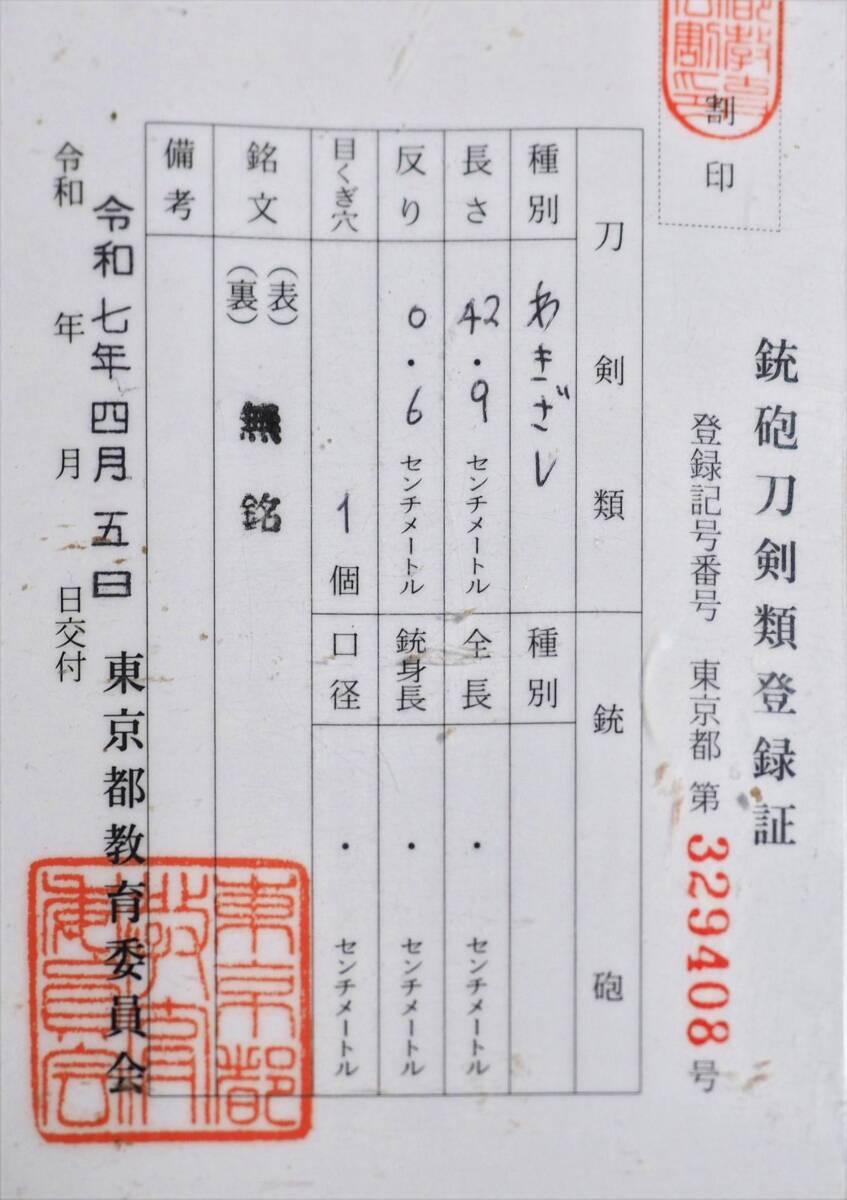 銃砲刀剣類登録証
割印
登録記号番号 東京都 第 329408 号
刀剣類
種別 わきざし
長さ 42.9 センチメートル
反り 0.6 センチメートル
目くぎ穴 1個
銘文 (表) (裏) 無銘
備考
銃砲
種別
全長 ・ センチメートル
銃身長 ・ センチメートル
口径 ・ センチメートル
令和七年四月五日
令和 年 月 日交付
東京都教育委員会
東京都教育委員会